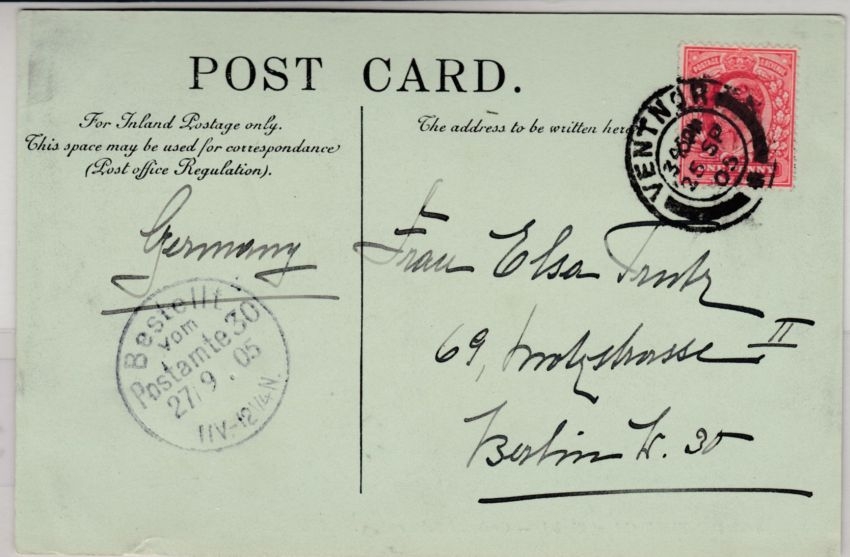 POST CARD.
For Inland Postage only.
This space may be used for correspondance
(Post office Regulation).
The address to be written here
POSTAGE REVENUE
ONE PENNY
VENTNOR
25 SP
05
Germany
Bestellt
vom
Postamte 30
27/9. 05
11V-12¼N.
Frau Elsa
69, Motzstrasse II
Berlin W. 30